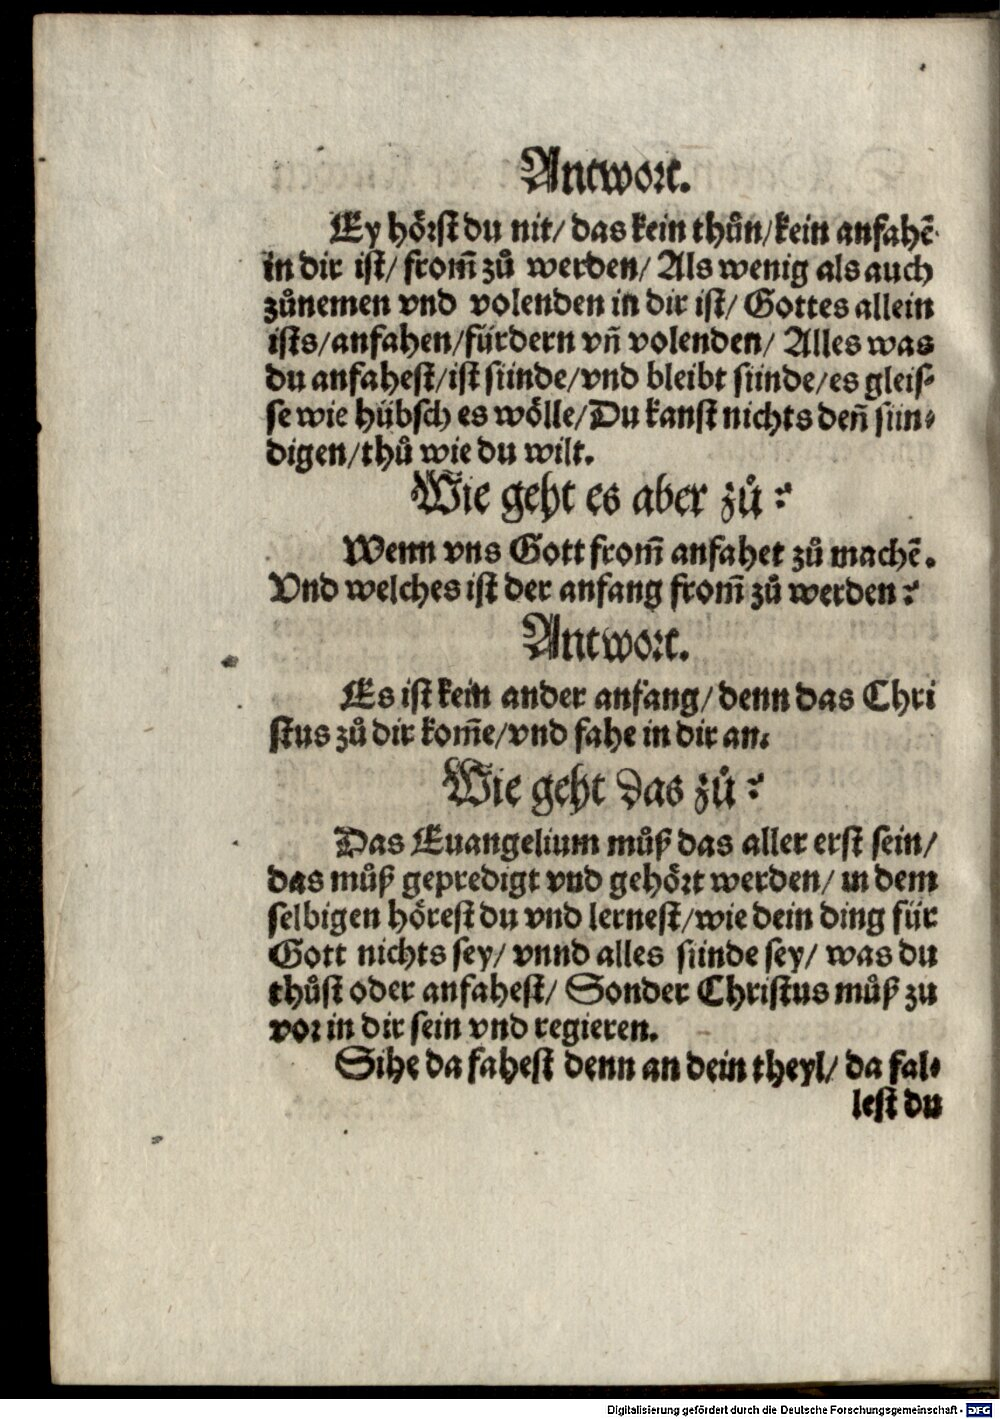 Antwort.
Ey hörst du nit/ das kein thůn/kein anfahē
in dir ist/ from̄ zů werden/ Als wenig als auch
zůnemen vnd volenden in dir ist/ Gottes allein
ists/anfahen/fürdern vn̄ volenden/ Alles was
du anfahest/ist sünde/vnd bleibt sünde/es gleis⸗
se wie hübsch es wölle/Du kanst nichts den̄ sün⸗
digen/thů wie du wilt.
Wie geht es aber zů?
Wenn vns Gott from̄ anfahet zů machē.
Vnd welches ist der anfang from̄ zů werden?
Antwort.
Es ist kein ander anfang/denn das Chri
stus zů dir kom̄e/vnd fahe in dir an.
Wie geht das zů?
Das Euangelium můß das aller erst sein/
das můß gepredigt vnd gehört werden/ in dem
selbigen hörest du vnd lernest/wie dein ding für
Gott nichts sey/ vnnd alles sünde sey/ was du
thůst oder anfahest/ Sonder Christus můß zu
vor in dir sein vnd regieren.
Sihe da fahest denn an dein theyl/ da fal⸗
lest du
Digitalisierung gefördert durch die Deutsche Forschungsgemeinschaft - DFG